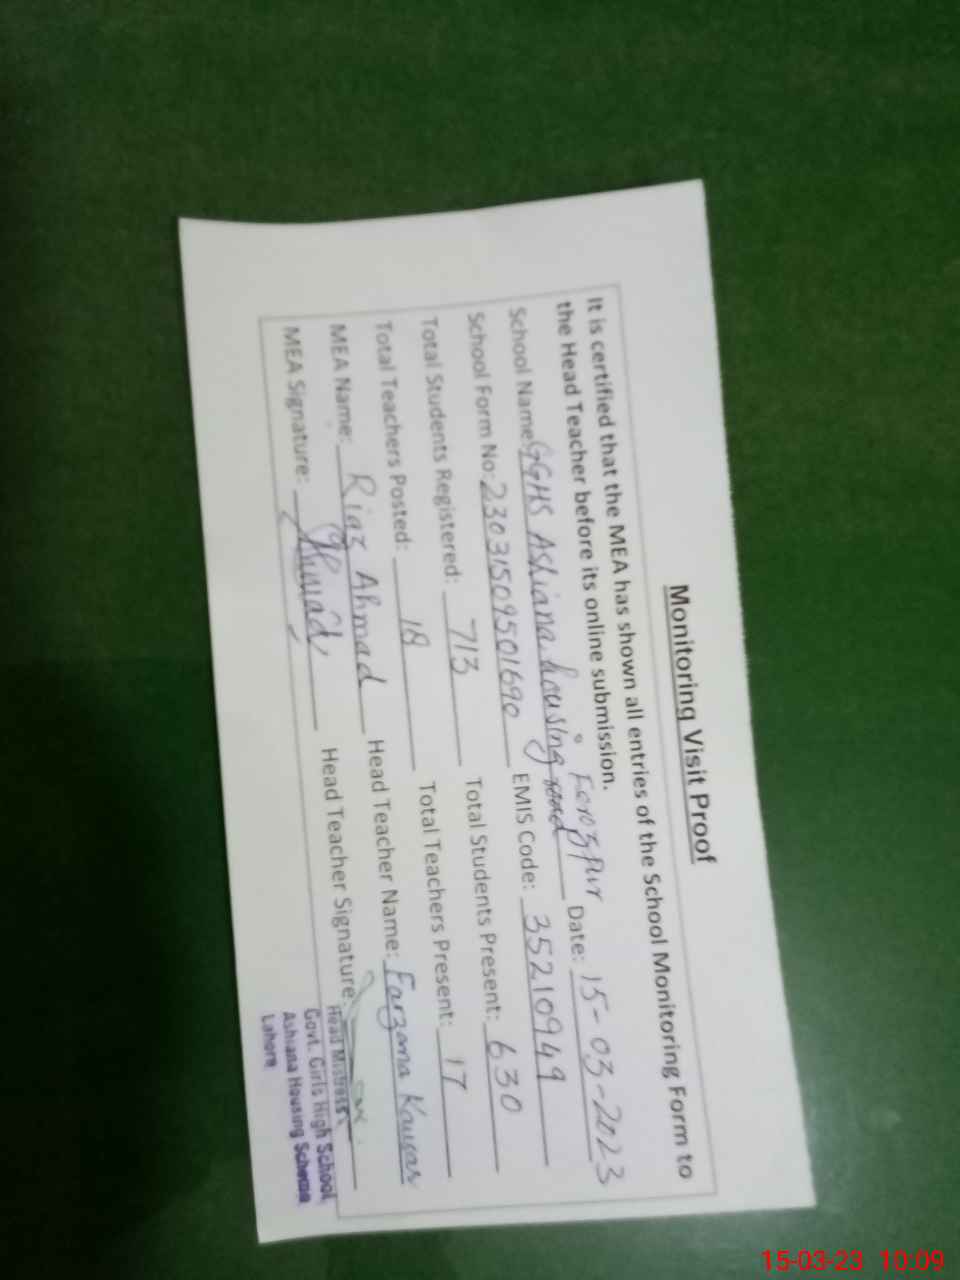 Monitoring Visit Proof
It is certified that the MEA has shown all entries of the School Monitoring Form to
the Head Teacher before its online submission.
Ferozpur
School Name: GGHS Ashiana housing road Date: 15-03-2023
School Form No: 23031509501690 EMIS Code: 35210949
Total Students Registered: 713 Total Students Present: 630
Total Teachers Posted: 18 Total Teachers Present: 17
MEA Name: Riaz Ahmad Head Teacher Name: Farzana Kausar
MEA Signature: Head Teacher Signature:
Head Mistress
Govt. Girls High School
Ashiana Housing Scheme
Lahore
15-03-23 10:09